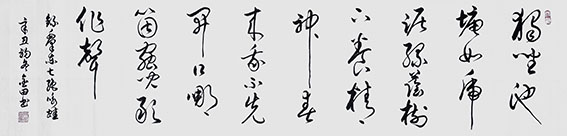 獨坐池
塘如虎
踞綠蔭樹
下養精
神春
來我不先
開口哪
箇蟲兒敢
作聲
錄毛澤東七絕咏蛙
辛丑
書